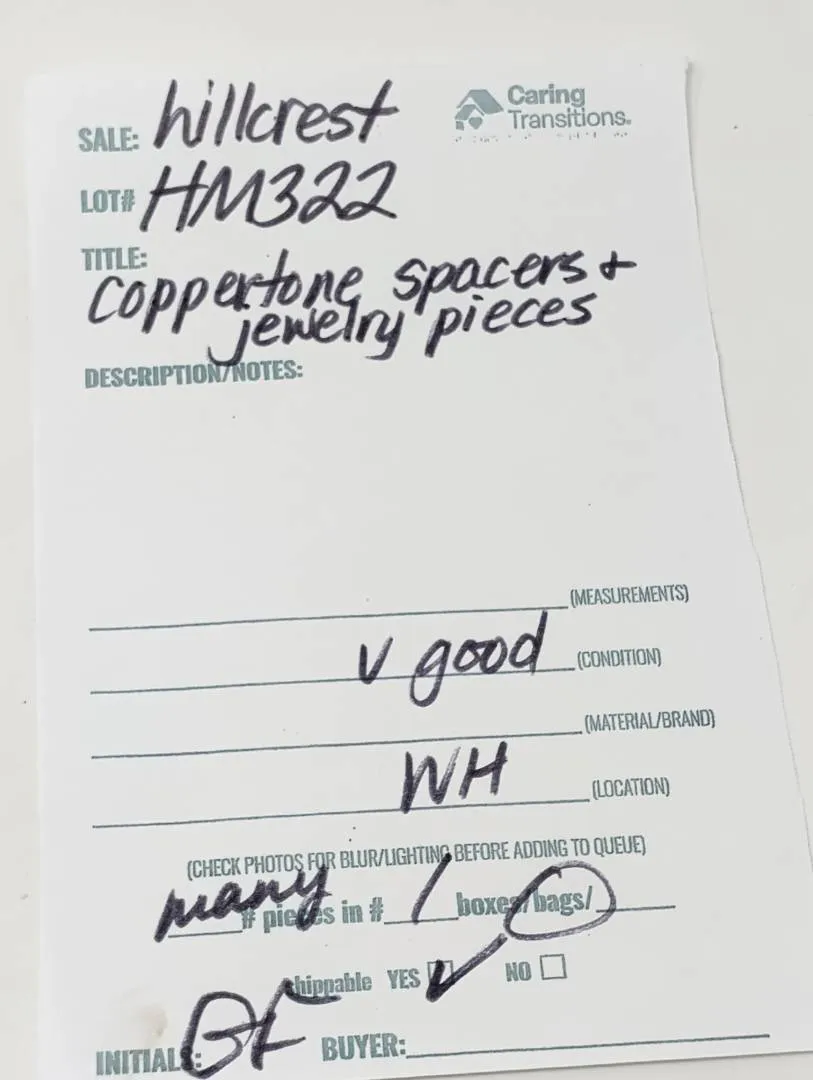 Caring
Transitions.
SALE: hillcrest
LOT# HM322
TITLE:
Coppertone spacers +
jewelry pieces
DESCRIPTION/NOTES:
(MEASUREMENTS)
v good (CONDITION)
(MATERIAL/BRAND)
WH (LOCATION)
(CHECK PHOTOS FOR BLUR/LIGHTING BEFORE ADDING TO QUEUE)
many # pieces in # 1 boxes/bags/
shippable YES NO
INITIALS: BUYER: